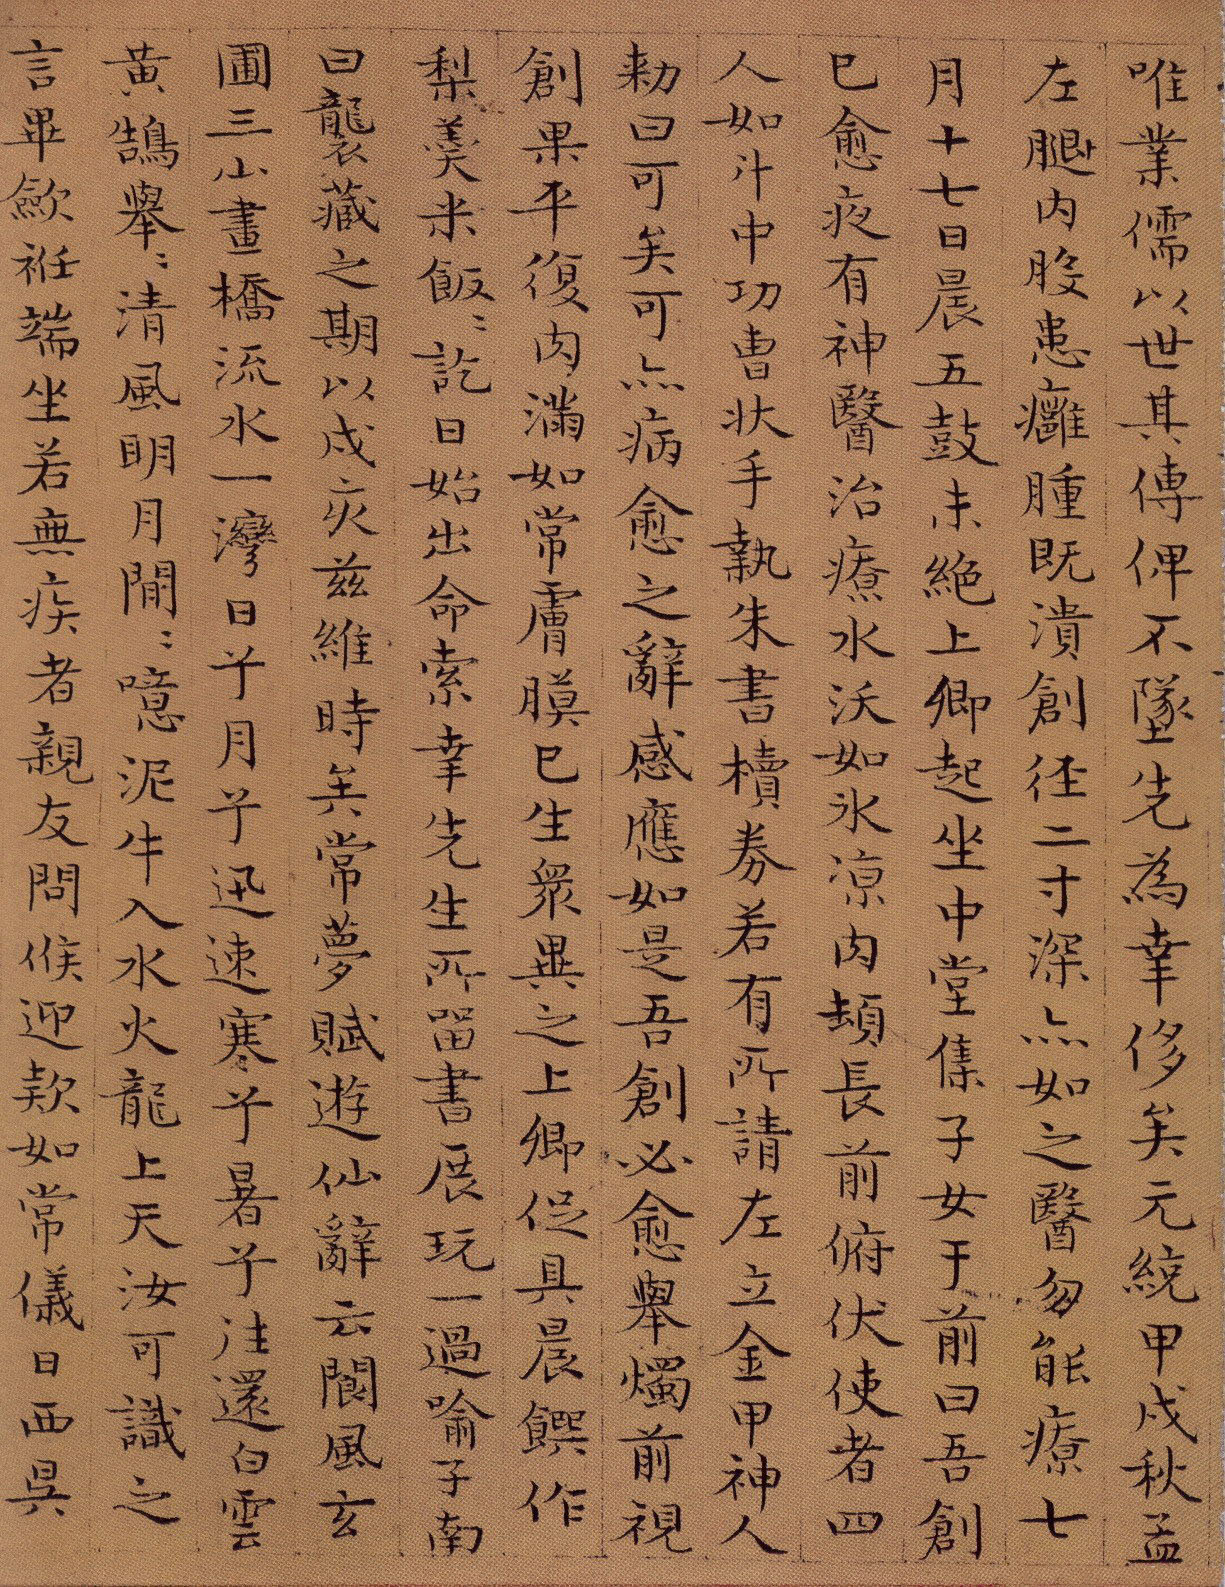 唯業儒以世其傳俾不墜先為幸侈矣元統甲戌秋孟
左腿内股患癰腫既潰創徑二寸深亦如之醫勿能療七
月十七日晨五鼓未絶上卿起坐中堂集子女于前曰吾創
已愈夜有神醫治療水沃如氷凉肉頓長前俯伏使者四
人如汁中功曹狀手執朱書櫝券若有所請左立金甲神人
勅曰可矣可亦病愈之辭感應如是吾創必愈舉燭前視
創果平復肉滿如常膚膜已生衆異之上卿促具晨饌作
梨羹米飯〻訖日始出命索幸先生所留書展玩一過喻子南
曰襲藏之期以戌亥兹維時矣常夢賦遊仙辭云閬風玄
圃三山畫橋流水一灣日兮月兮迅速寒兮暑兮往還白雲
黄鵠舉〻清風明月閒〻噫泥牛入水火龍上天汝可識之
言畢歛袵端坐若無疾者親友問候迎欵如常儀日西昃